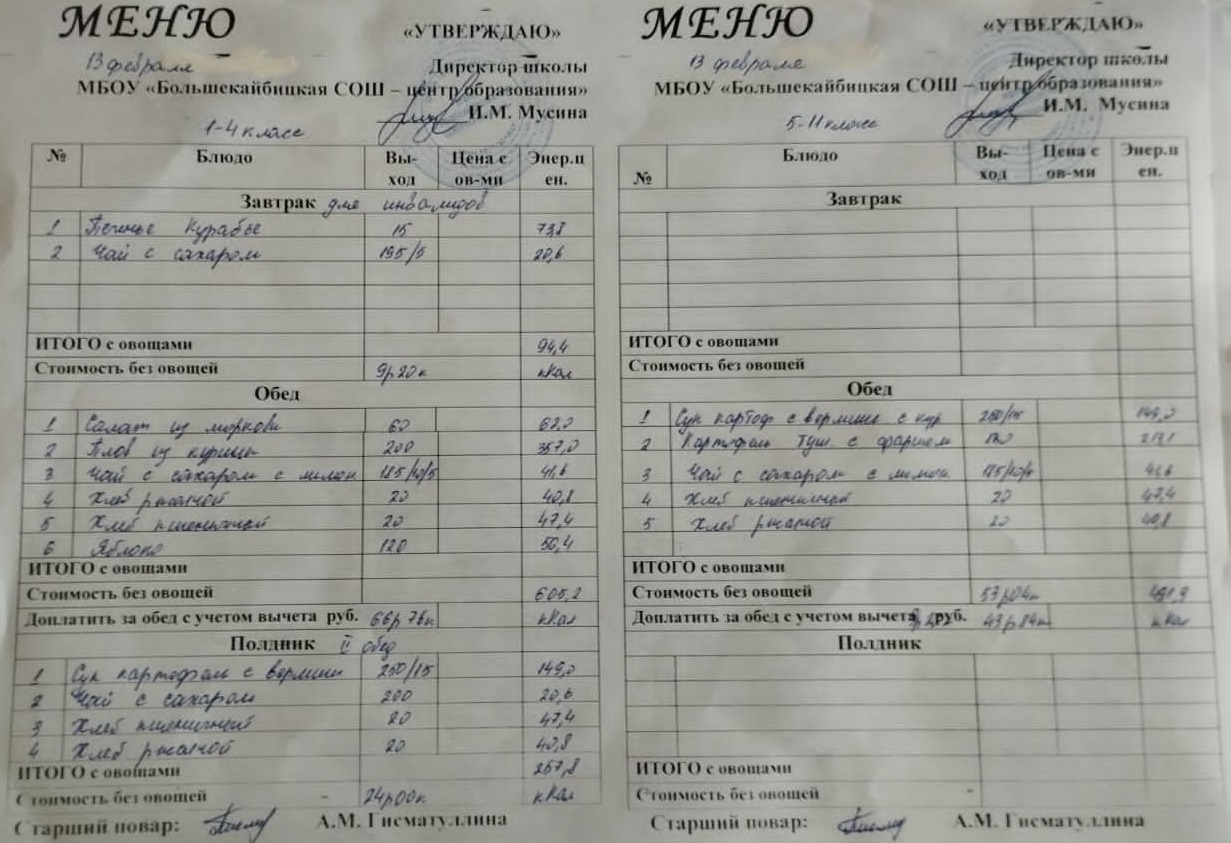 МЕНЮ
«УТВЕРЖДАЮ»
13 февраля
Директор школы
МБОУ «Большекайбицкая СОШ – центр образования»
И.М. Мусина
1-4 класс
№ Блюдо Вы-ход Цена с ов-ми Энер.ц ен.
Завтрак для инвалидов
1 Печенье Курабье 15 73,8
2 Чай с сахаром 195/5 20,6
ИТОГО с овощами 94,4
Стоимость без овощей 9р20к кКал
Обед
1 Салат из моркови 60 62,0
2 Плов из курицы 200 357,0
3 Чай с сахаром с лимон 185/10/5 41,6
4 Хлеб ржаной 20 40,8
5 Хлеб пшеничный 20 47,4
6 Яблоко 120 56,4
ИТОГО с овощами
Стоимость без овощей 605,2
Доплатить за обед с учетом вычета руб. 66р 78к кКал
Полдник II обед
1 Суп картофел с вермиш 250/15 149,0
2 Чай с сахаром 200 20,6
3 Хлеб пшеничный 20 47,4
4 Хлеб ржаной 20 40,8
ИТОГО с овощами 257,8
Стоимость без овощей - 24р00к кКал
Старший повар: А.М. Гисматуллина
МЕНЮ
«УТВЕРЖДАЮ»
13 февраля
Директор школы
МБОУ «Большекайбицкая СОШ – центр образования»
И.М. Мусина
5-11 класс
№ Блюдо Вы-ход Цена с ов-ми Энер.ц ен.
Завтрак
ИТОГО с овощами
Стоимость без овощей
Обед
1 Суп картоф с вермише с кур 250/15 149,0
2 Картофель туш. с фаршем
3 Чай с сахаром с лимон 185/10/5 41,6
4 Хлеб пшеничный 20 47,4
5 Хлеб ржаной 20 40,8
ИТОГО с овощами
Стоимость без овощей 53р04к
Доплатить за обед с учетом вычета руб. 43р84к кКал
Полдник
ИТОГО с овощами
Стоимость без овощей -
Старший повар: А.М. Гисматуллина